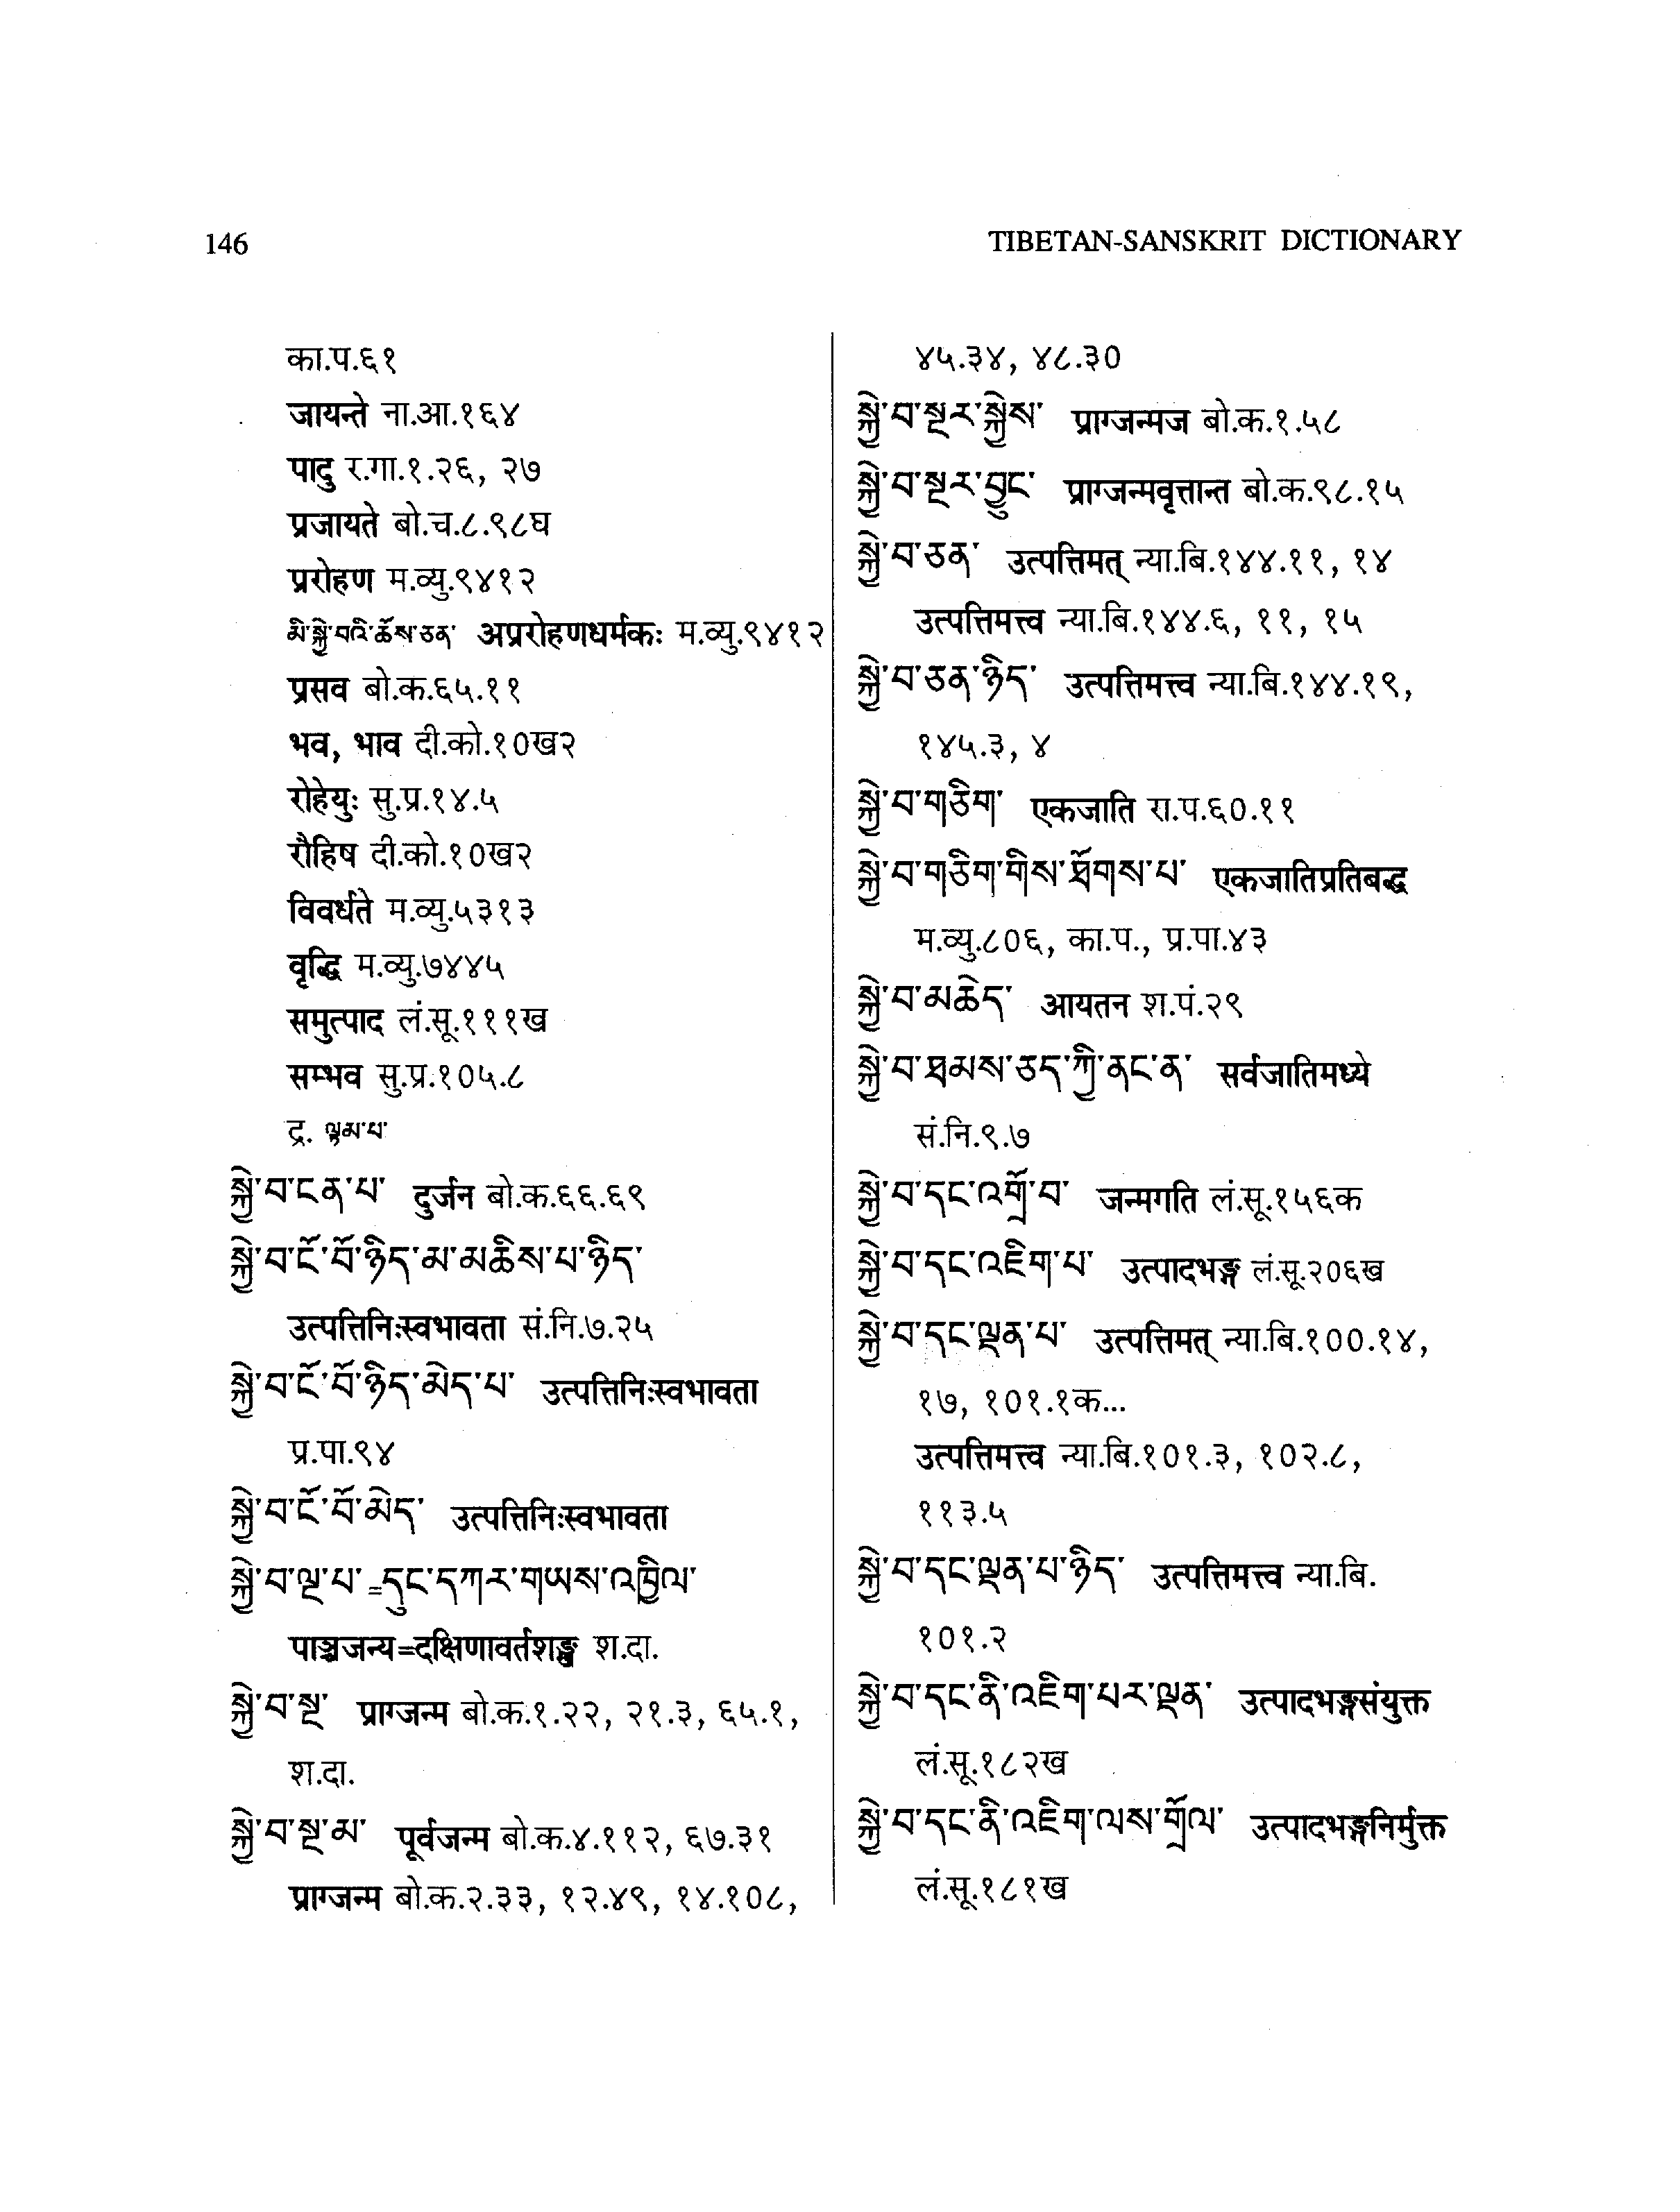 146
TIBETAN-SANSKRIT DICTIONARY
का.प.६१
जायन्ते ना.आ.१६४
पादु र.गा.१.२६, २७
प्रजायते बो.च.८.९८घ
प्ररोहण म.व्यु.९४१२
མི་སྐྱེ་བའི་ཆོས་ཅན་ अप्ररोहणधर्मकः म.व्यु.९४१२
प्रसव बो.क.६५.११
भव, भाव दी.को.१०ख२
रोहेयुः सु.प्र.१४.५
रौहिष दी.को.१०ख२
विवर्धते म.व्यु.५३१३
वृद्धि म.व्यु.७४४५
समुत्पाद लं.सू.१११ख
सम्भव सु.प्र.१०५.८
द्र. ལྟམ་པ་
སྐྱེ་བ་ངན་པ་ दुर्जन बो.क.६६.६९
སྐྱེ་བ་ངོ་བོ་ཉིད་མ་མཆིས་པ་ཉིད་
उत्पत्तिनिःस्वभावता सं.नि.७.२५
སྐྱེ་བ་ངོ་བོ་ཉིད་མེད་པ་ उत्पत्तिनिःस्वभावता
प्र.पा.९४
སྐྱེ་བ་ངོ་བོ་མེད་ उत्पत्तिनिःस्वभावता
སྐྱེ་བ་ལྔ་པ་=དུང་དཀར་གཡས་འཁྱིལ་
पाञ्चजन्य=दक्षिणावर्तशङ्ख श.दा.
སྐྱེ་བ་སྔ་ प्राग्जन्म बो.क.१.२२, २१.३, ६५.१,
श.दा.
སྐྱེ་བ་སྔ་མ་ पूर्वजन्म बो.क.४.११२, ६७.३१
प्राग्जन्म बो.क.२.३३, १२.४९, १४.१०८,
४५.३४, ४८.३०
སྐྱེ་བ་སྔར་སྐྱེས་ प्राग्जन्मज बो.क.१.५८
སྐྱེ་བ་སྔར་བྱུང་ प्राग्जन्मवृत्तान्त बो.क.९८.१५
སྐྱེ་བ་ཅན་ उत्पत्तिमत् न्या.बि.१४४.११, १४
उत्पत्तिमत्त्व न्या.बि.१४४.६, ११, १५
སྐྱེ་བ་ཅན་ཉིད་ उत्पत्तिमत्त्व न्या.बि.१४४.१९,
१४५.३, ४
སྐྱེ་བ་གཅིག་ एकजाति रा.प.६०.११
སྐྱེ་བ་གཅིག་གིས་ཐོགས་པ་ एकजातिप्रतिबद्ध
म.व्यु.८०६, का.प., प्र.पा.४३
སྐྱེ་བ་མཆེད་ आयतन श.पं.२९
སྐྱེ་བ་ཐམས་ཅད་ཀྱི་ནང་ན་ सर्वजातिमध्ये
सं.नि.९.७
སྐྱེ་བ་དང་འགྲོ་བ་ जन्मगति लं.सू.१५६क
སྐྱེ་བ་དང་འཇིག་པ་ उत्पादभङ्ग लं.सू.२०६ख
སྐྱེ་བ་དང་ལྡན་པ་ उत्पत्तिमत् न्या.बि.१००.१४,
१७, १०१.१क...
उत्पत्तिमत्त्व न्या.बि.१०१.३, १०२.८,
११३.५
སྐྱེ་བ་དང་ལྡན་པ་ཉིད་ उत्पत्तिमत्त्व न्या.बि.
१०१.२
སྐྱེ་བ་དང་ནི་འཇིག་པར་ལྡན་ उत्पादभङ्गसंयुक्त
लं.सू.१८२ख
སྐྱེ་བ་དང་ནི་འཇིག་ལས་གྲོལ་ उत्पादभङ्गनिर्मुक्त
लं.सू.१८१ख